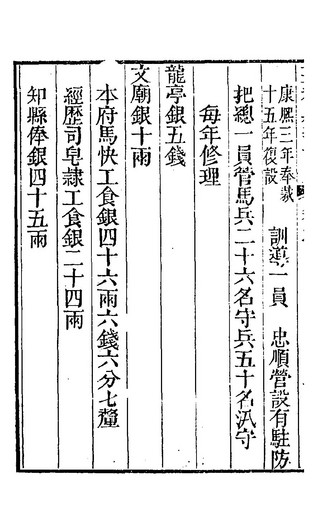 康熙三年奉裁
十五年復設
訓導一員　忠順營設有駐防
把總一員管馬兵二十六名守兵五十名汛守
每年修理
龍亭銀五錢
文廟銀十兩
本府馬快工食銀四十六兩六錢六分七釐
經歷司皂隸工食銀二十四兩
知縣俸銀四十五兩